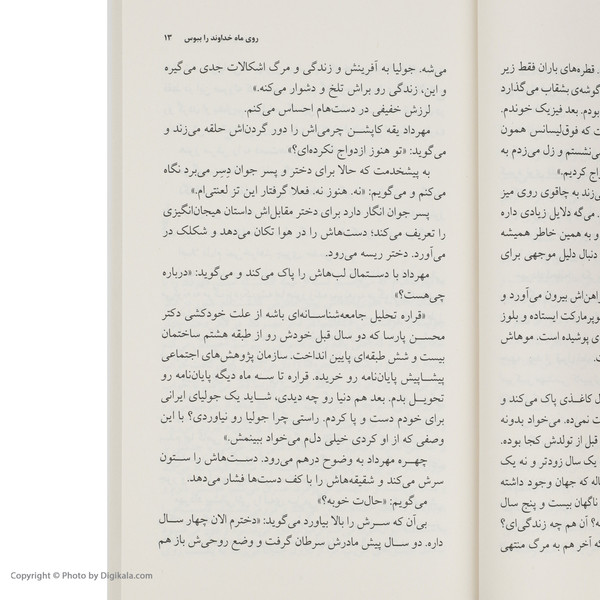 روی ماه خداوند را ببوس ۱۳
می‌شه. جولیا به آفرینش و زندگی و مرگ اشکالات جدی می‌گیره
و این، زندگی رو براش تلخ و دشوار می‌کنه.»
لرزش خفیفی در دست‌هام احساس می‌کنم.
مهرداد یقه کاپشن چرمی‌اش را دور گردن‌اش حلقه می‌زند و
می‌گوید: «تو هنوز ازدواج نکرده‌ای؟»
به پیشخدمت که حالا برای دختر و پسر جوان دِسِر می‌برد نگاه
می‌کنم و می‌گویم: «نه. هنوز نه. فعلا گرفتار این تز لعنتی‌ام.»
پسر جوان انگار دارد برای دختر مقابل‌اش داستان هیجان‌انگیزی
را تعریف می‌کند؛ دست‌هاش را در هوا تکان می‌دهد و شکلک در
می‌آورد. دختر ریسه می‌رود.
مهرداد با دستمال لب‌هاش را پاک می‌کند و می‌گوید: «درباره
چی‌هست؟»
«قراره تحلیل جامعه‌شناسانه‌ای باشه از علت خودکشی دکتر
محسن پارسا که دو سال قبل خودش رو از طبقه هشتم ساختمان
بیست و شش طبقه‌ای پایین انداخت. سازمان پژوهش‌های اجتماعی
پیشاپیش پایان‌نامه رو خریده. قراره تا سه ماه دیگه پایان‌نامه رو
تحویل بدم. بعد هم دنیا رو چه دیدی، شاید یک جولیای ایرانی
برای خودم دست و پا کردم. راستی چرا جولیا رو نیاوردی؟ با این
وصفی که از او کردی خیلی دلم می‌خواد ببینمش.»
چهره مهرداد به وضوح درهم می‌رود. دست‌هاش را ستون
سرش می‌کند و شقیقه‌هاش را با کف دست‌ها فشار می‌دهد.
می‌گویم: «حال‌ت خوبه؟»
بی‌آن که سرش را بالا بیاورد می‌گوید: «دخترم الان چهار سال
داره. دو سال پیش مادرش سرطان گرفت و وضع روحی‌ش باز هم
قطره‌های باران فقط زیر
گوشه‌ی بشقاب می‌گذارد
بودم. بعد فیزیک خوندم.
ت که فوق‌لیسانس همون
ی‌نشستم و زل می‌زدم به
اج کردیم.»
زند به چاقوی روی میز
. می‌گه دلایل زیادی داره
و به همین خاطر همیشه
دنبال دلیل موجهی برای
راهن‌اش بیرون می‌آورد و
وپرمارکت ایستاده و بلوز
ی پوشیده است. موهاش
ل کاغذی پاک می‌کند و
ت نمی‌ده. می‌خواد بدونه
قبل از تولدش کجا بوده.
یک سال زودتر و نه یک
اله که جهان وجود داشته
ناگهان بیست و پنج سال
ه؟ آن هم چه زندگی‌ای؟
که آخر هم به مرگ منتهی
Copyright © Photo by Digikala.com